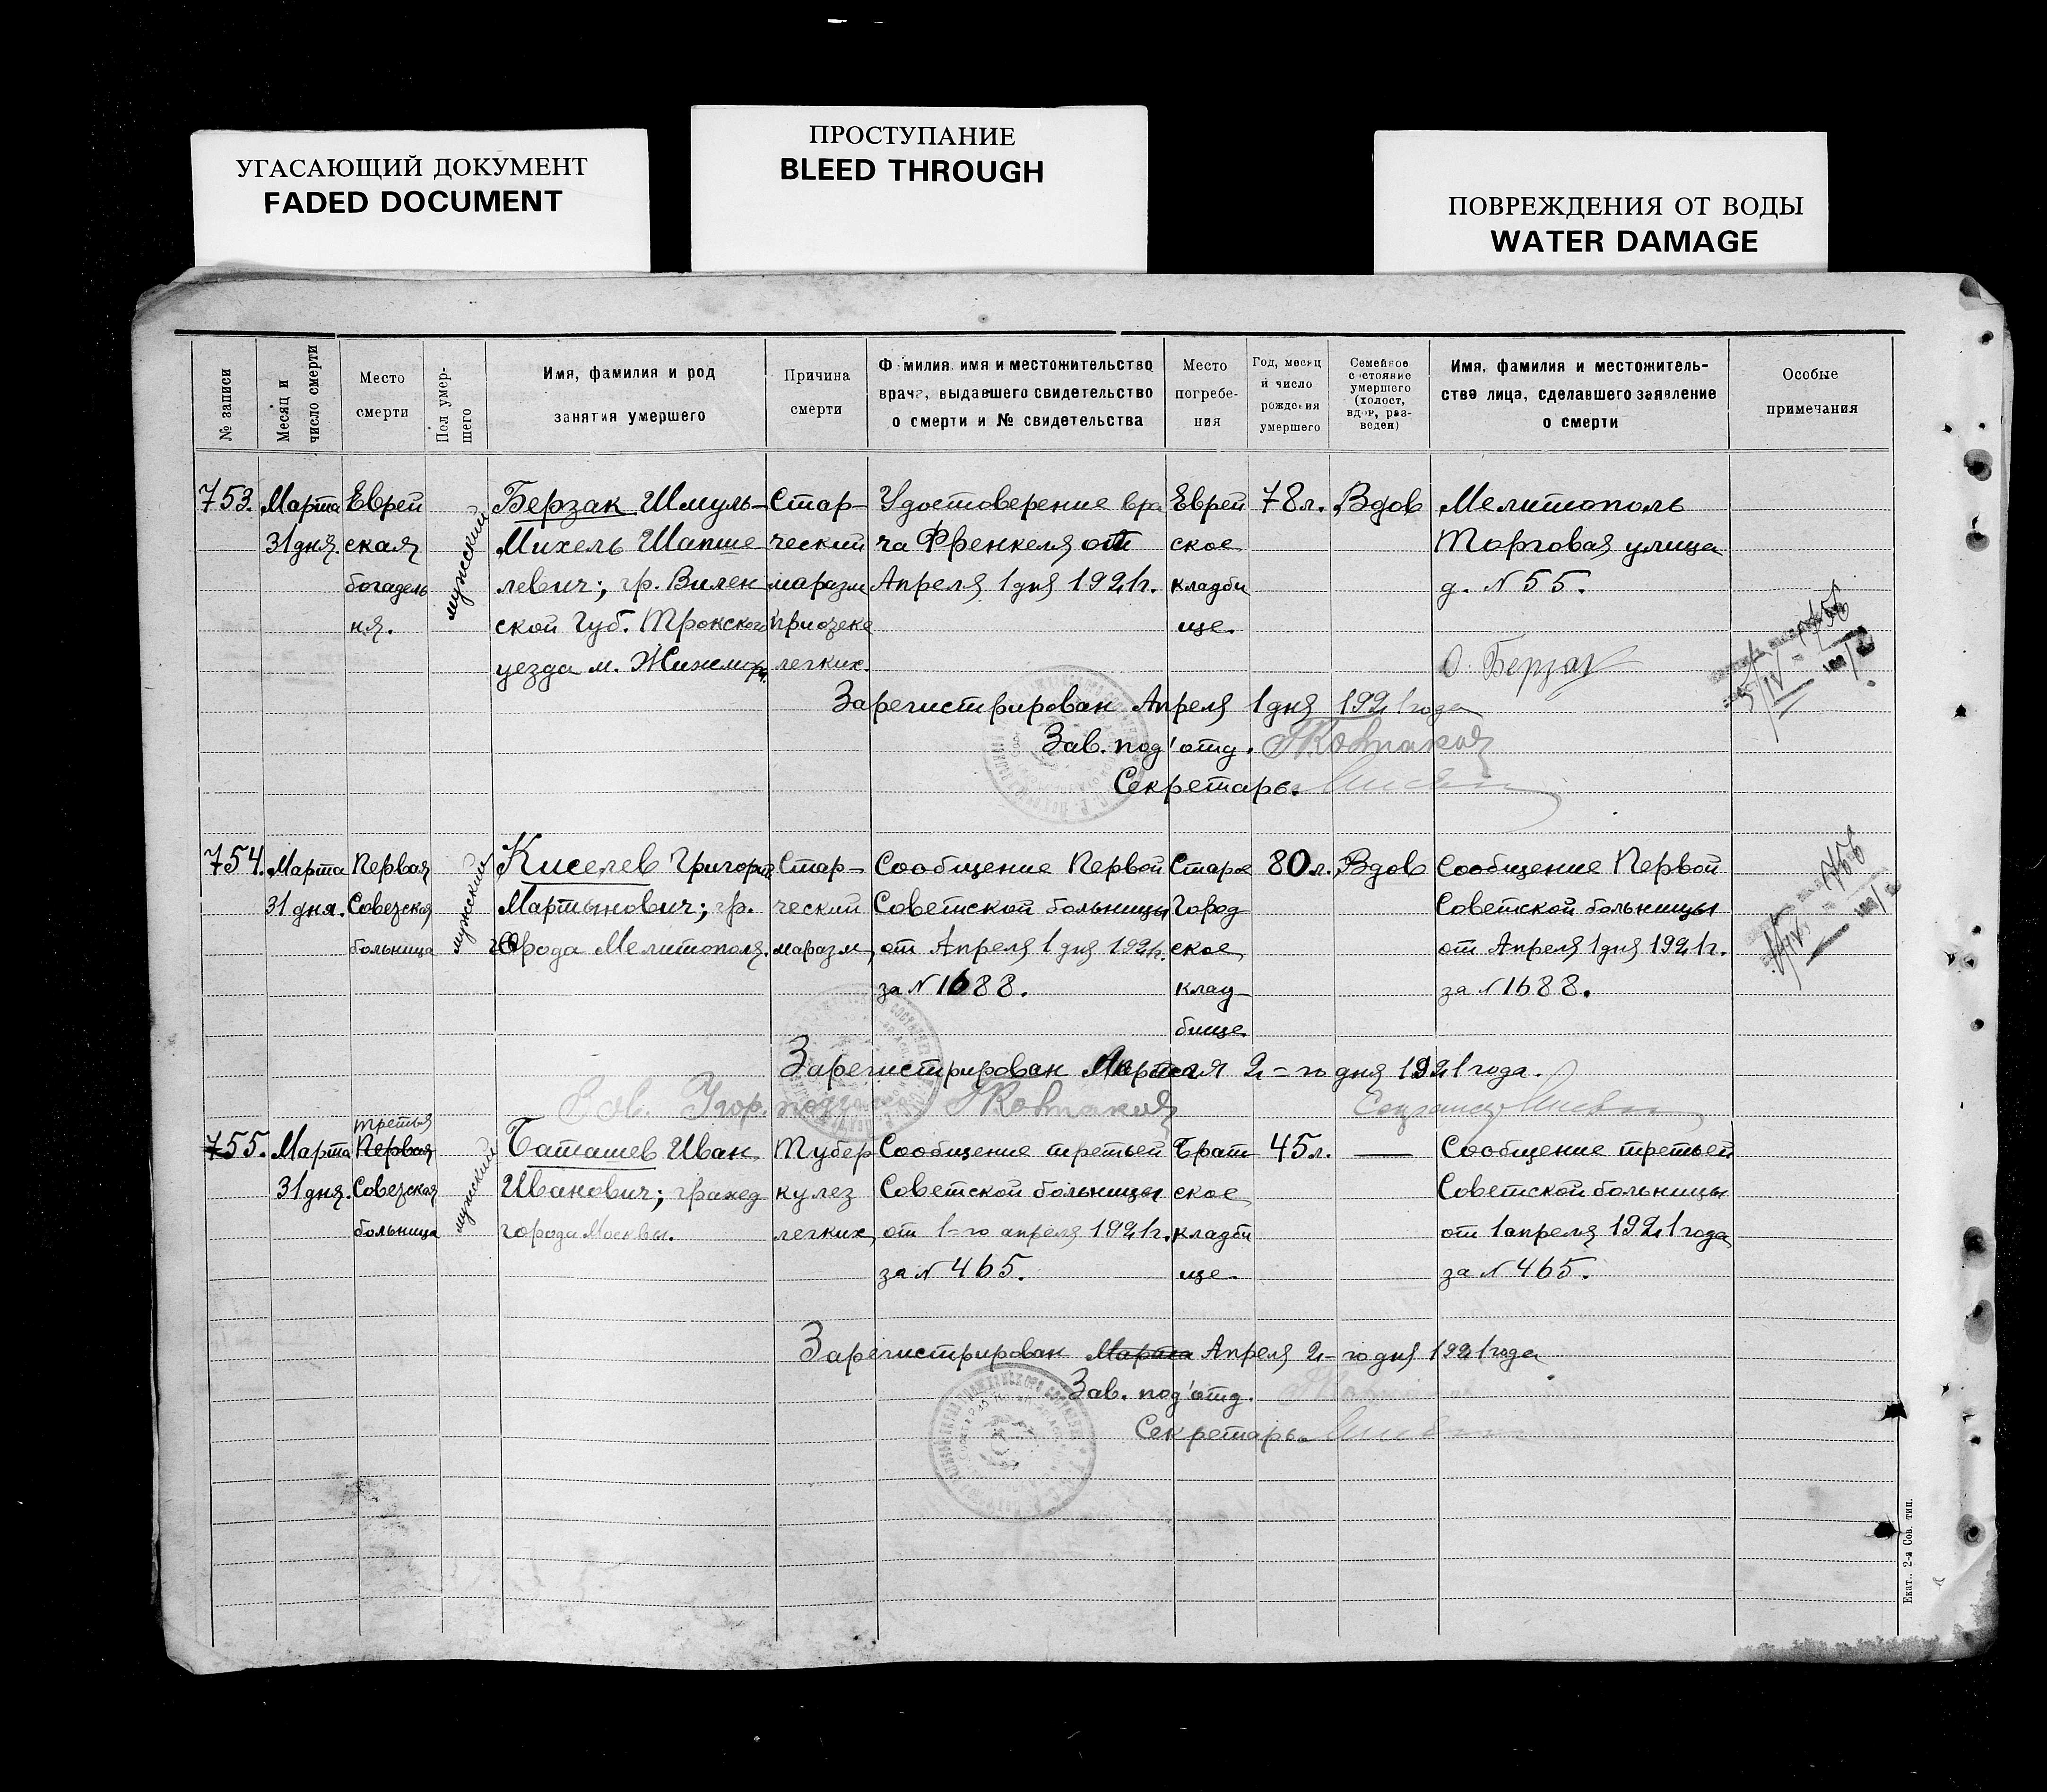 УГАСАЮЩИЙ ДОКУМЕНТ
FADED DOCUMENT
ПРОСТУПАНИЕ
BLEED THROUGH
ПОВРЕЖДЕНИЯ ОТ ВОДЫ
WATER DAMAGE
№ записи
Месяц и
число смерти
Место
смерти
Пол умер-
шего
Имя, фамилия и род
занятия умершего
Причина
смерти
Фамилия, имя и местожительство
врача, выдавшего свидетельство
о смерти и № свидетельства
Место
погребе-
ния
Год, месяц
и число
рождения
умершего
Семейное
состояние
умершего
(холост,
вдов, раз-
веден)
Имя, фамилия и местожитель-
ства лица, сделавшего заявление
о смерти
Особые
примечания
753.
Марта
31 дня.
Еврей
ская
богадель
ня.
мужский
Берзак Шмуль-
Михель Шапше
левич; гр. Вилен
ской Губ. Трокского
уезда м.
Стар-
ческий
маразм
при отеке
легких.
Удостоверение вра
ча Френкеля от
Апреля 1 дня 1921г.
Еврей
ское
кладби
ще.
78 л.
Вдов
Мелитополь
Торговая улица
д. N 55.
О. Берзак
Зарегистрирован Апреля 1 дня 1921 года
Зав. под'отд.
Секретарь
754.
Марта
31 дня.
Первая
Советская
больница
мужский
Киселев Григорий
Мартынович; гр.
города Мелитополя.
Стар-
ческий
маразм
Сообщение Первой
Советской больницы
от Апреля 1 дня 1921г.
за N 1688.
Старое
Город
ское
клад-
бище
80 л.
Вдов
Сообщение Первой
Советской больницы
от Апреля 1 дня 1921г.
за N 1688.
Зарегистрирован Апреля 2-го дня 1921 года.
755.
Марта
31 дня.
третья
Первая
Советская
больница
мужский
Баташев Иван
Иванович; гражд
города Москвы.
Тубер
кулез
легких
Сообщение третьей
Советской больницы
от 1-го апреля 1921г.
за N 465.
Брат
ское
кладби
ще.
45 л.
—
Сообщение третьей
Советской больницы
от 1 апреля 1921 года
за N 465.
Зарегистрирован Марта Апреля 2-го дня 1921 года
Зав. под'отд.
Секретарь
Екат., 2-я Сов. тип.